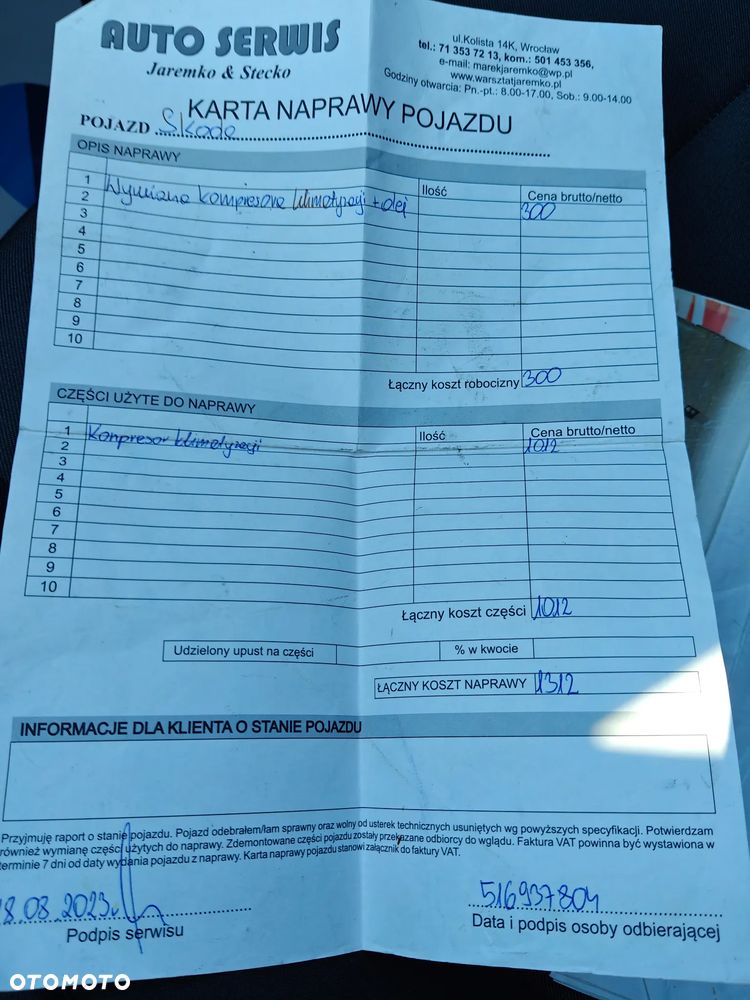 AUTO SERWIS
Jaremko & Stecko
ul.Kolista 14K, Wrocław
tel.: 71 353 72 13, kom.: 501 453 356,
e-mail: marekjaremko@wp.pl
www.warsztatjaremko.pl
Godziny otwarcia: Pn.-pt.: 8.00-17.00, Sob.: 9.00-14.00
KARTA NAPRAWY POJAZDU
POJAZD Skoda
OPIS NAPRAWY
Ilość Cena brutto/netto
1 Wymiana kompresora klimatyzacji + olej 300
2
3
4
5
6
7
8
9
10
Łączny koszt robocizny 300
CZĘŚCI UŻYTE DO NAPRAWY
Ilość Cena brutto/netto
1 Kompresor klimatyzacji 1012
2
3
4
5
6
7
8
9
10
Łączny koszt części 1012
Udzielony upust na części % w kwocie
ŁĄCZNY KOSZT NAPRAWY 1312
INFORMACJE DLA KLIENTA O STANIE POJAZDU
Przyjmuję raport o stanie pojazdu. Pojazd odebrałem/łam sprawny oraz wolny od usterek technicznych usuniętych wg powyższych specyfikacji. Potwierdzam
również wymianę części użytych do naprawy. Zdemontowane części pojazdu zostały przekazane odbiorcy do wglądu. Faktura VAT powinna być wystawiona w
terminie 7 dni od daty wydania pojazdu z naprawy. Karta naprawy pojazdu stanowi załącznik do faktury VAT.
8.08.2023
516937804
Podpis serwisu
Data i podpis osoby odbierającej
OTOMOTO